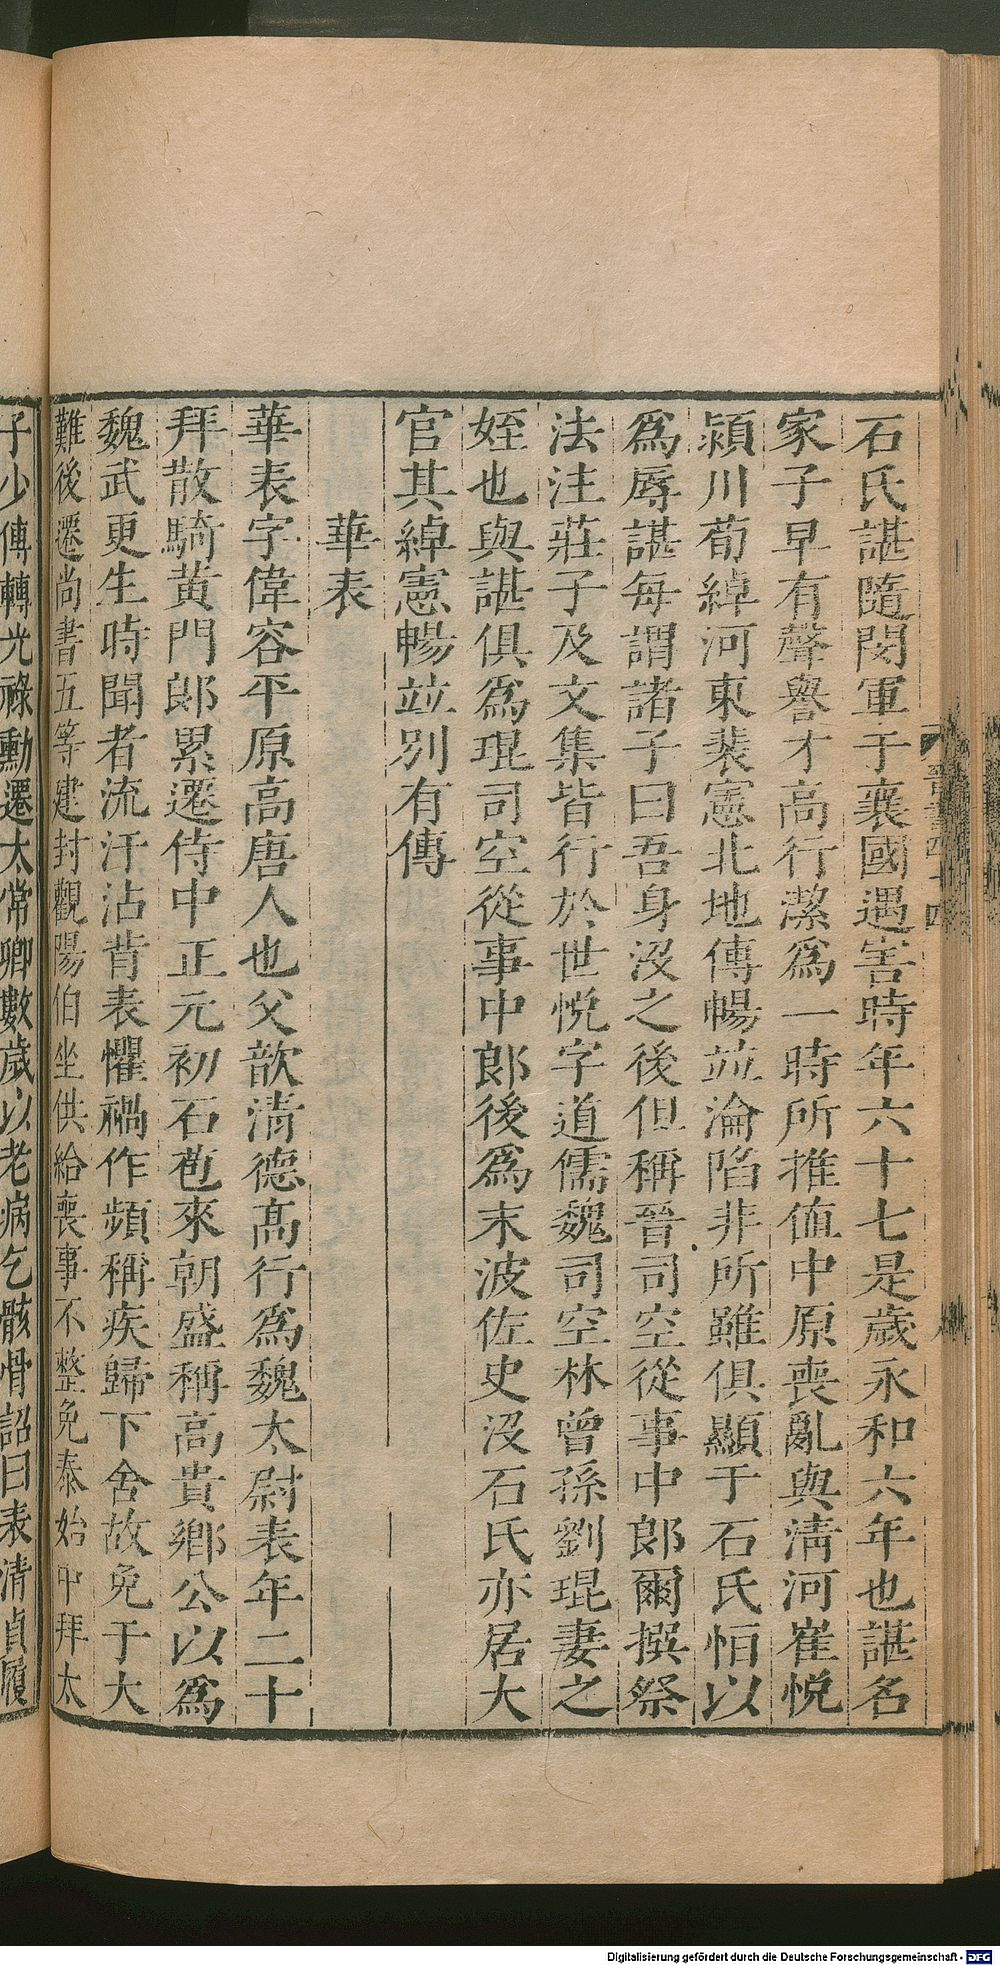 石氏諶隨閔軍于襄國遇害時年六十七是歲永和六年也諶名
家子早有聲譽才高行潔爲一時所推值中原喪亂與清河崔悅
潁川荀綽河東裴憲北地傅暢竝淪陷非所雖俱顯于石氏恒以
爲辱諶每謂諸子曰吾身沒之後但稱晉司空從事中郎爾撰祭
法注莊子及文集皆行於世悅字道儒魏司空林曾孫劉琨妻之
姪也與諶俱爲琨司空從事中郎後爲末波佐史沒石氏亦居大
官其綽憲暢竝別有傳
華表
華表字偉容平原高唐人也父歆清德高行爲魏太尉表年二十
拜散騎黃門郎累遷侍中正元初石苞來朝盛稱高貴鄉公以爲
魏武更生時聞者流汗沾背表懼禍作頻稱疾歸下舍故免于大
難後遷尚書五等建封觀陽伯坐供給喪事不整免泰始中拜太
子少傅轉光祿勳遷太常卿數歲以老病乞骸骨詔曰表清貞履
Digitalisierung gefördert durch die Deutsche Forschungsgemeinschaft - DFG